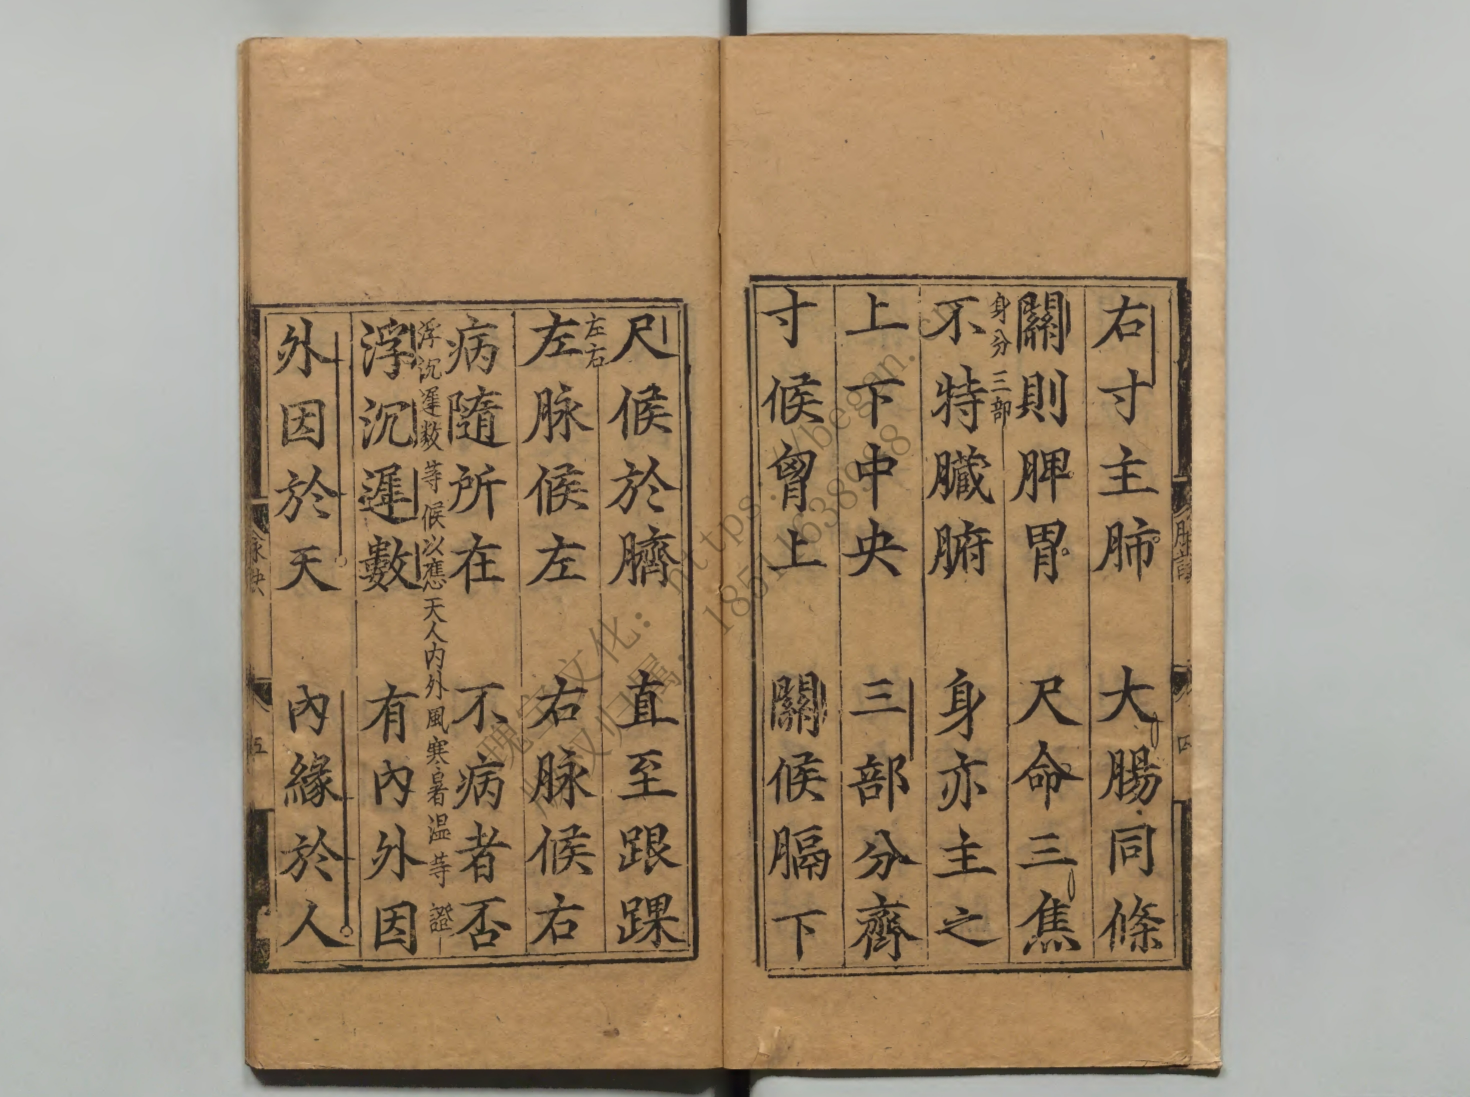 右寸主肺 大腸同條
關則脾胃 尺命三焦
身分 三部
不特臟腑 身亦主之
上下中央 三部分齊
寸候胷上 關候膈下
尺候於臍 直至跟踝
左右
左脉候左 右脉候右
病隨所在 不病者否
浮沉遲數等候以應天人内外風寒暑温等證
浮沉遲數 有內外因
外因於天 內緣於人
四
五